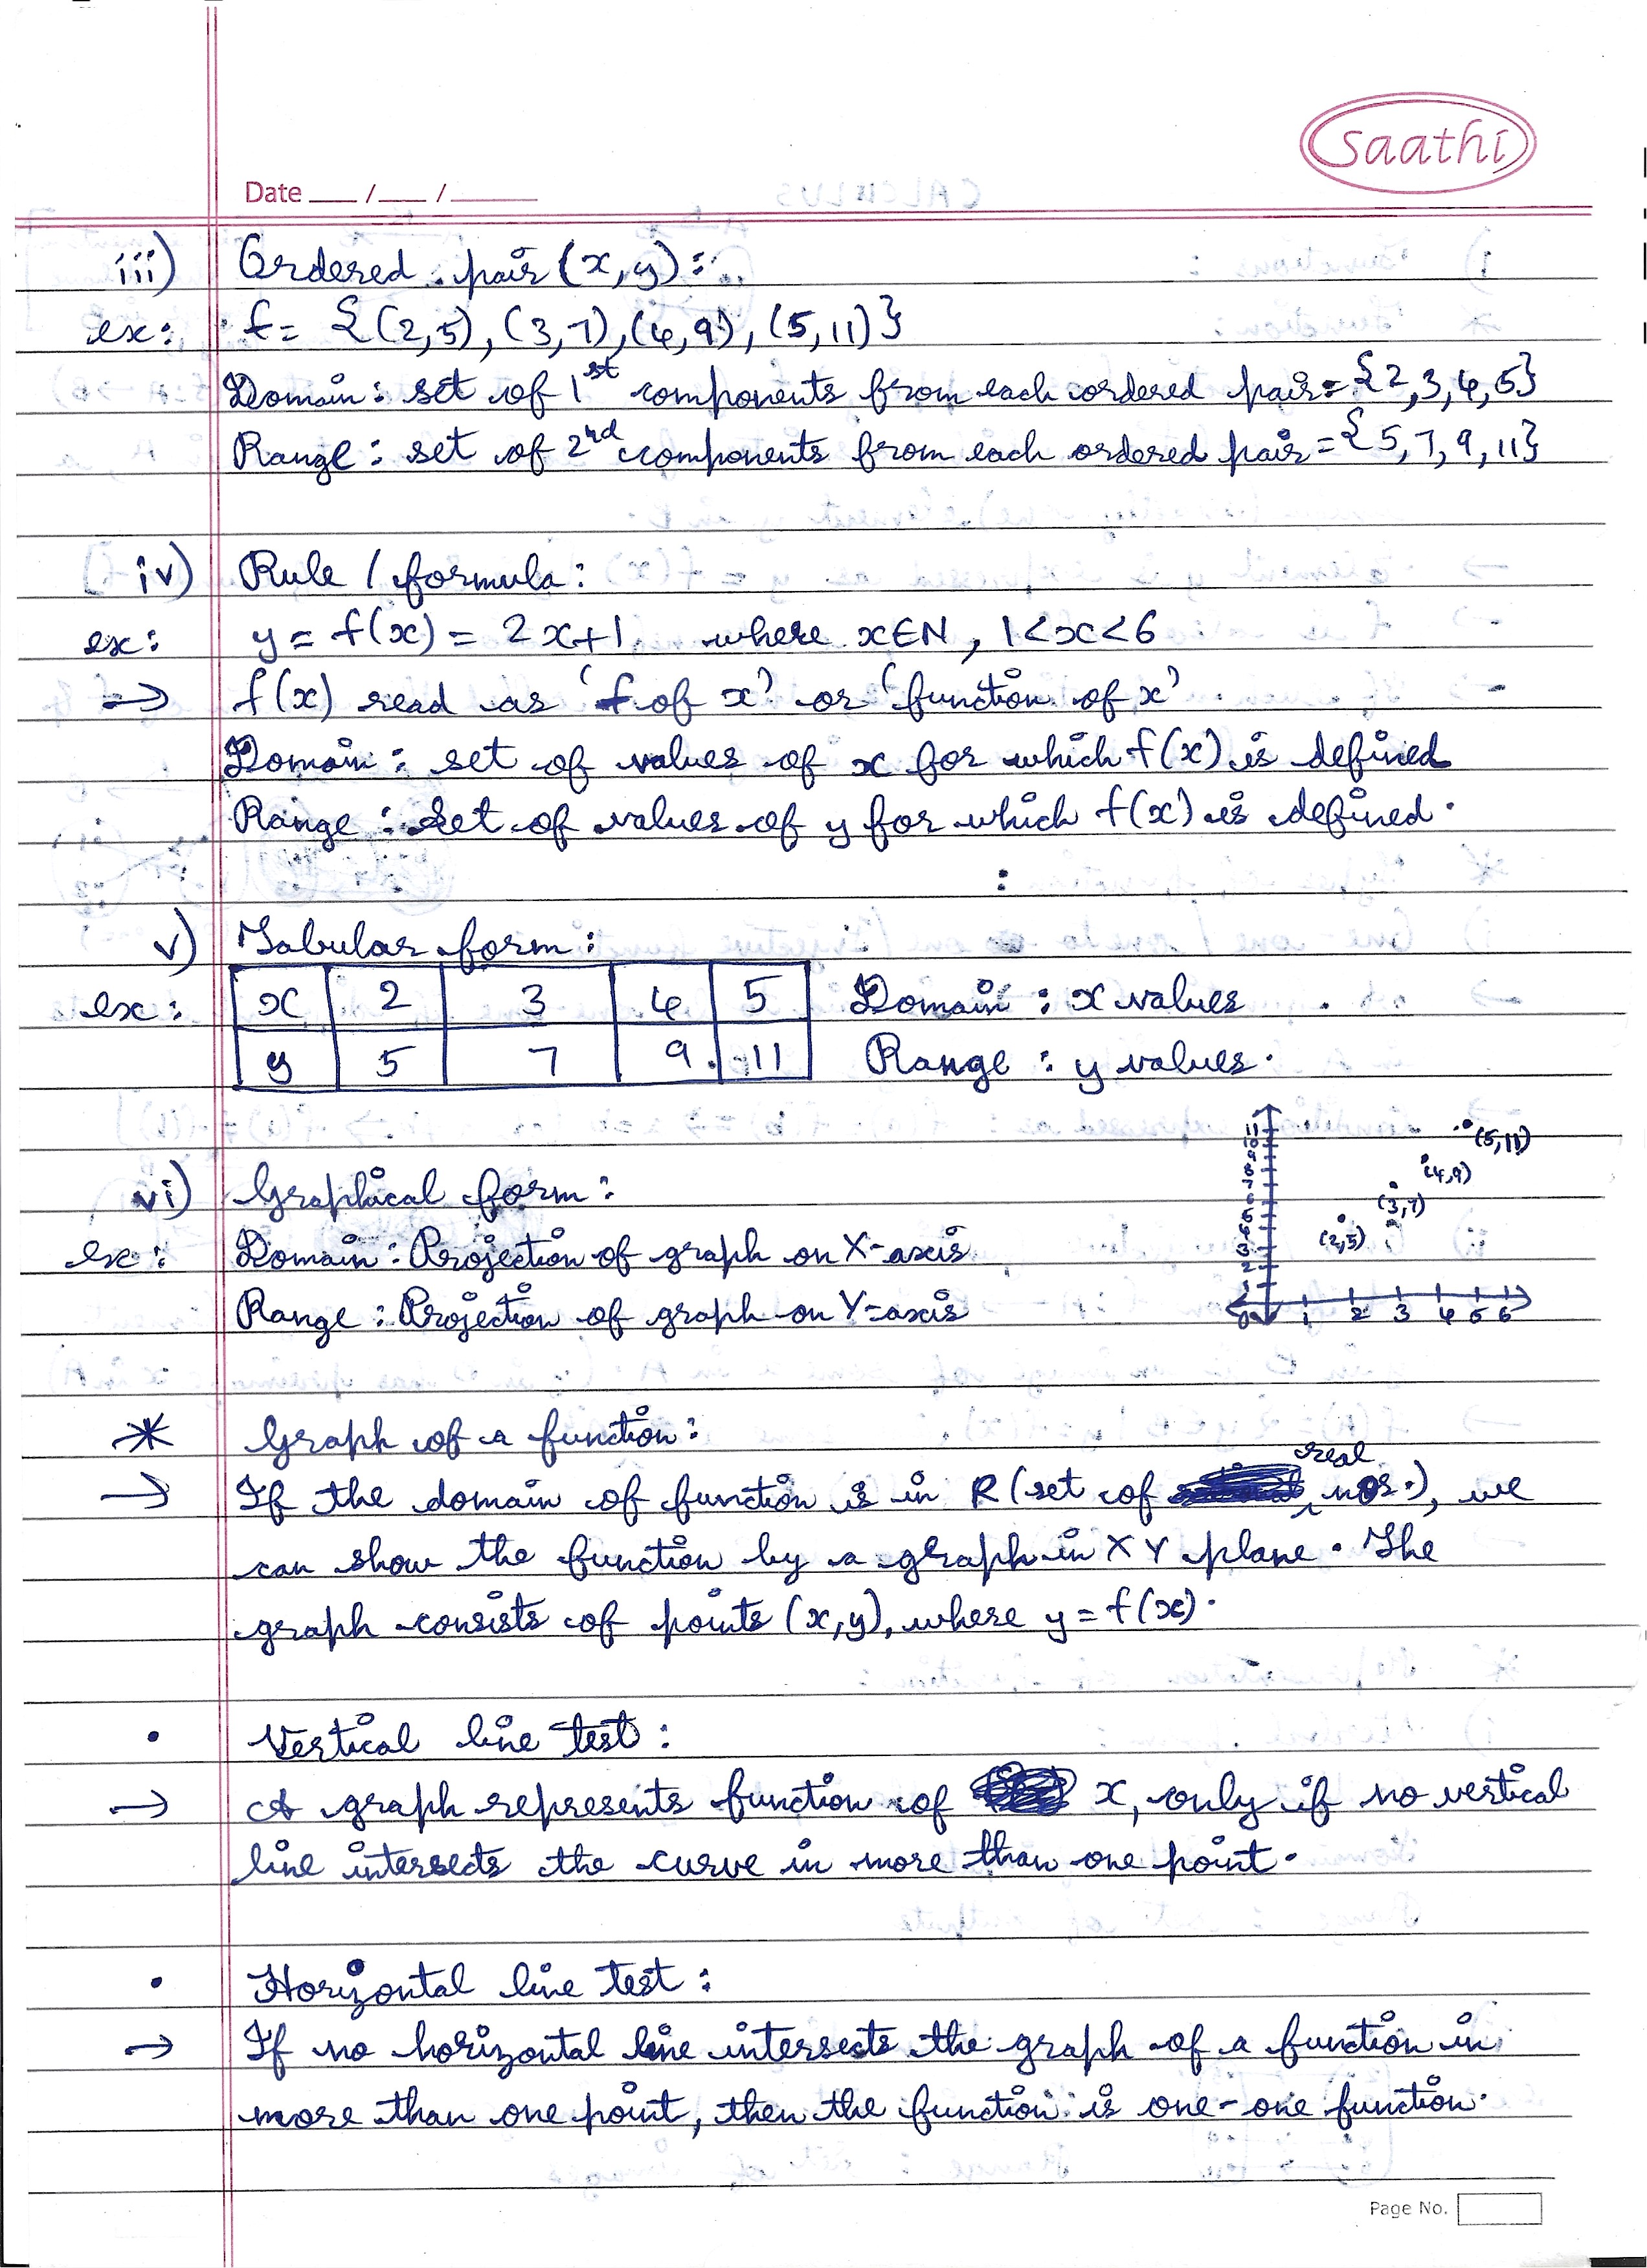 saathi
Date ___/___/_____
iii) Ordered pair (x,y):
ex: f = {(2,5), (3,7), (4,9), (5,11)}
Domain: set of 1st components from each ordered pair = {2,3,4,5}
Range: set of 2nd components from each ordered pair = {5,7,9,11}
iv) Rule / formula:
ex: y = f(x) = 2x+1, where x∈N, 1<x<6
⇒ f(x) read as 'f of x' or 'function of x'
Domain: set of values of x for which f(x) is defined
Range: set of values of y for which f(x) is defined.
v) Tabular form:
ex: x 2 3 4 5 Domain: x values
y 5 7 9 11 Range: y values.
vi) Graphical form:
ex: Domain: Projection of graph on X-axis
Range: Projection of graph on Y-axis
(5,11)
(4,9)
(3,7)
(2,5)
0 1 2 3 4 5 6
* Graph of a function:
→ If the domain of function is in R (set of real nos.), we
can show the function by a graph in XY plane. The
graph consists of points (x,y), where y = f(x).
• Vertical line test:
→ A graph represents function of x, only if no vertical
line intersects the curve in more than one point.
• Horizontal line test:
→ If no horizontal line intersects the graph of a function in
more than one point, then the function is one-one function.
Page No.